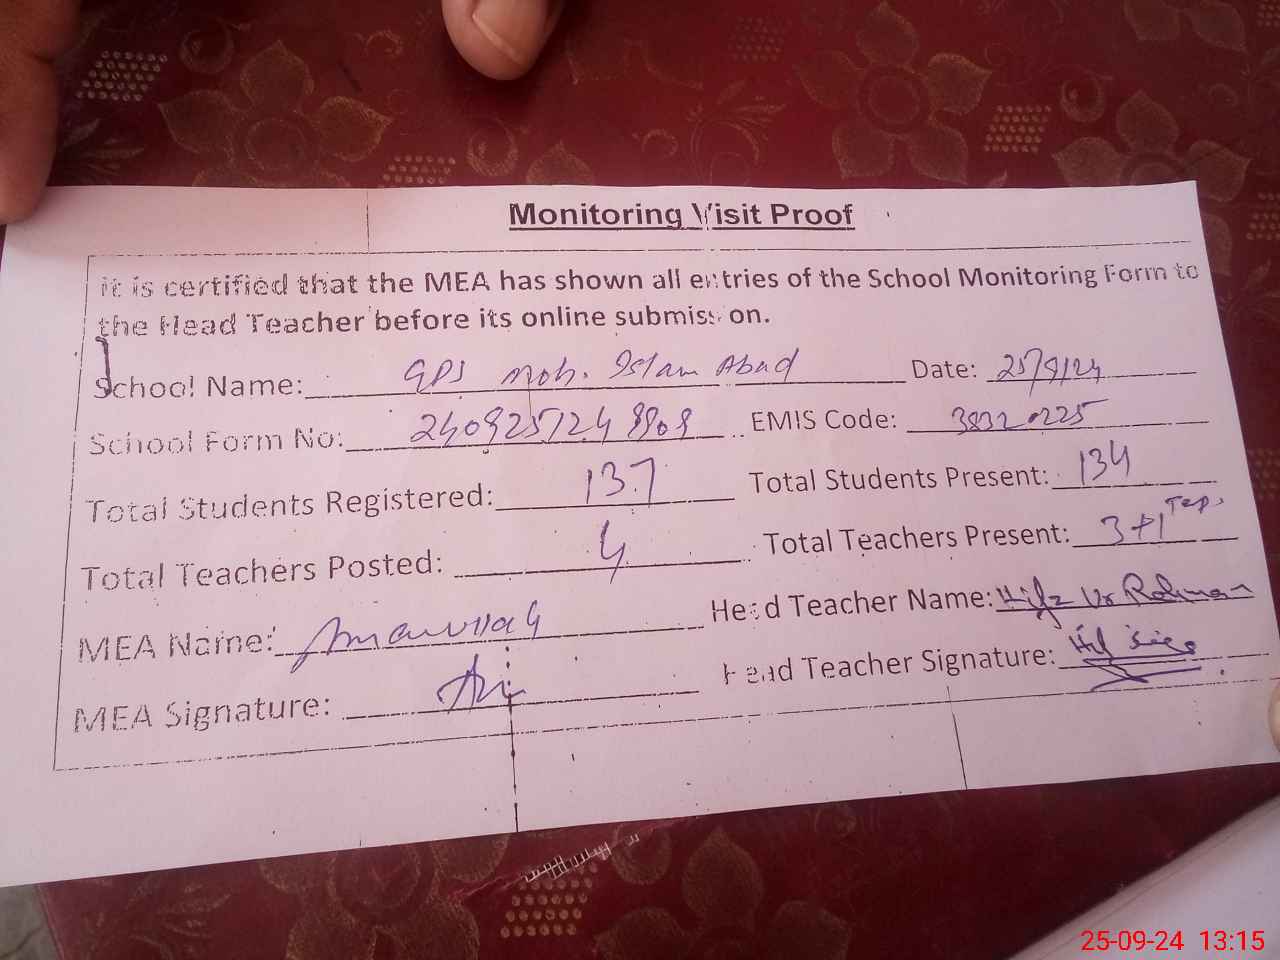 Monitoring Visit Proof
It is certified that the MEA has shown all entries of the School Monitoring Form to
the Head Teacher before its online submission.
School Name: GPS Moh. Islam Abad Date: 25/9/24
School Form No: 240925124 8908 EMIS Code: 38320225
Total Students Registered: 137 Total Students Present: 134
Total Teachers Posted: 4 Total Teachers Present: 3+1
MEA Name: Amanullah Head Teacher Name: Hifz Ur Rahman
MEA Signature: Head Teacher Signature:
25-09-24 13:15